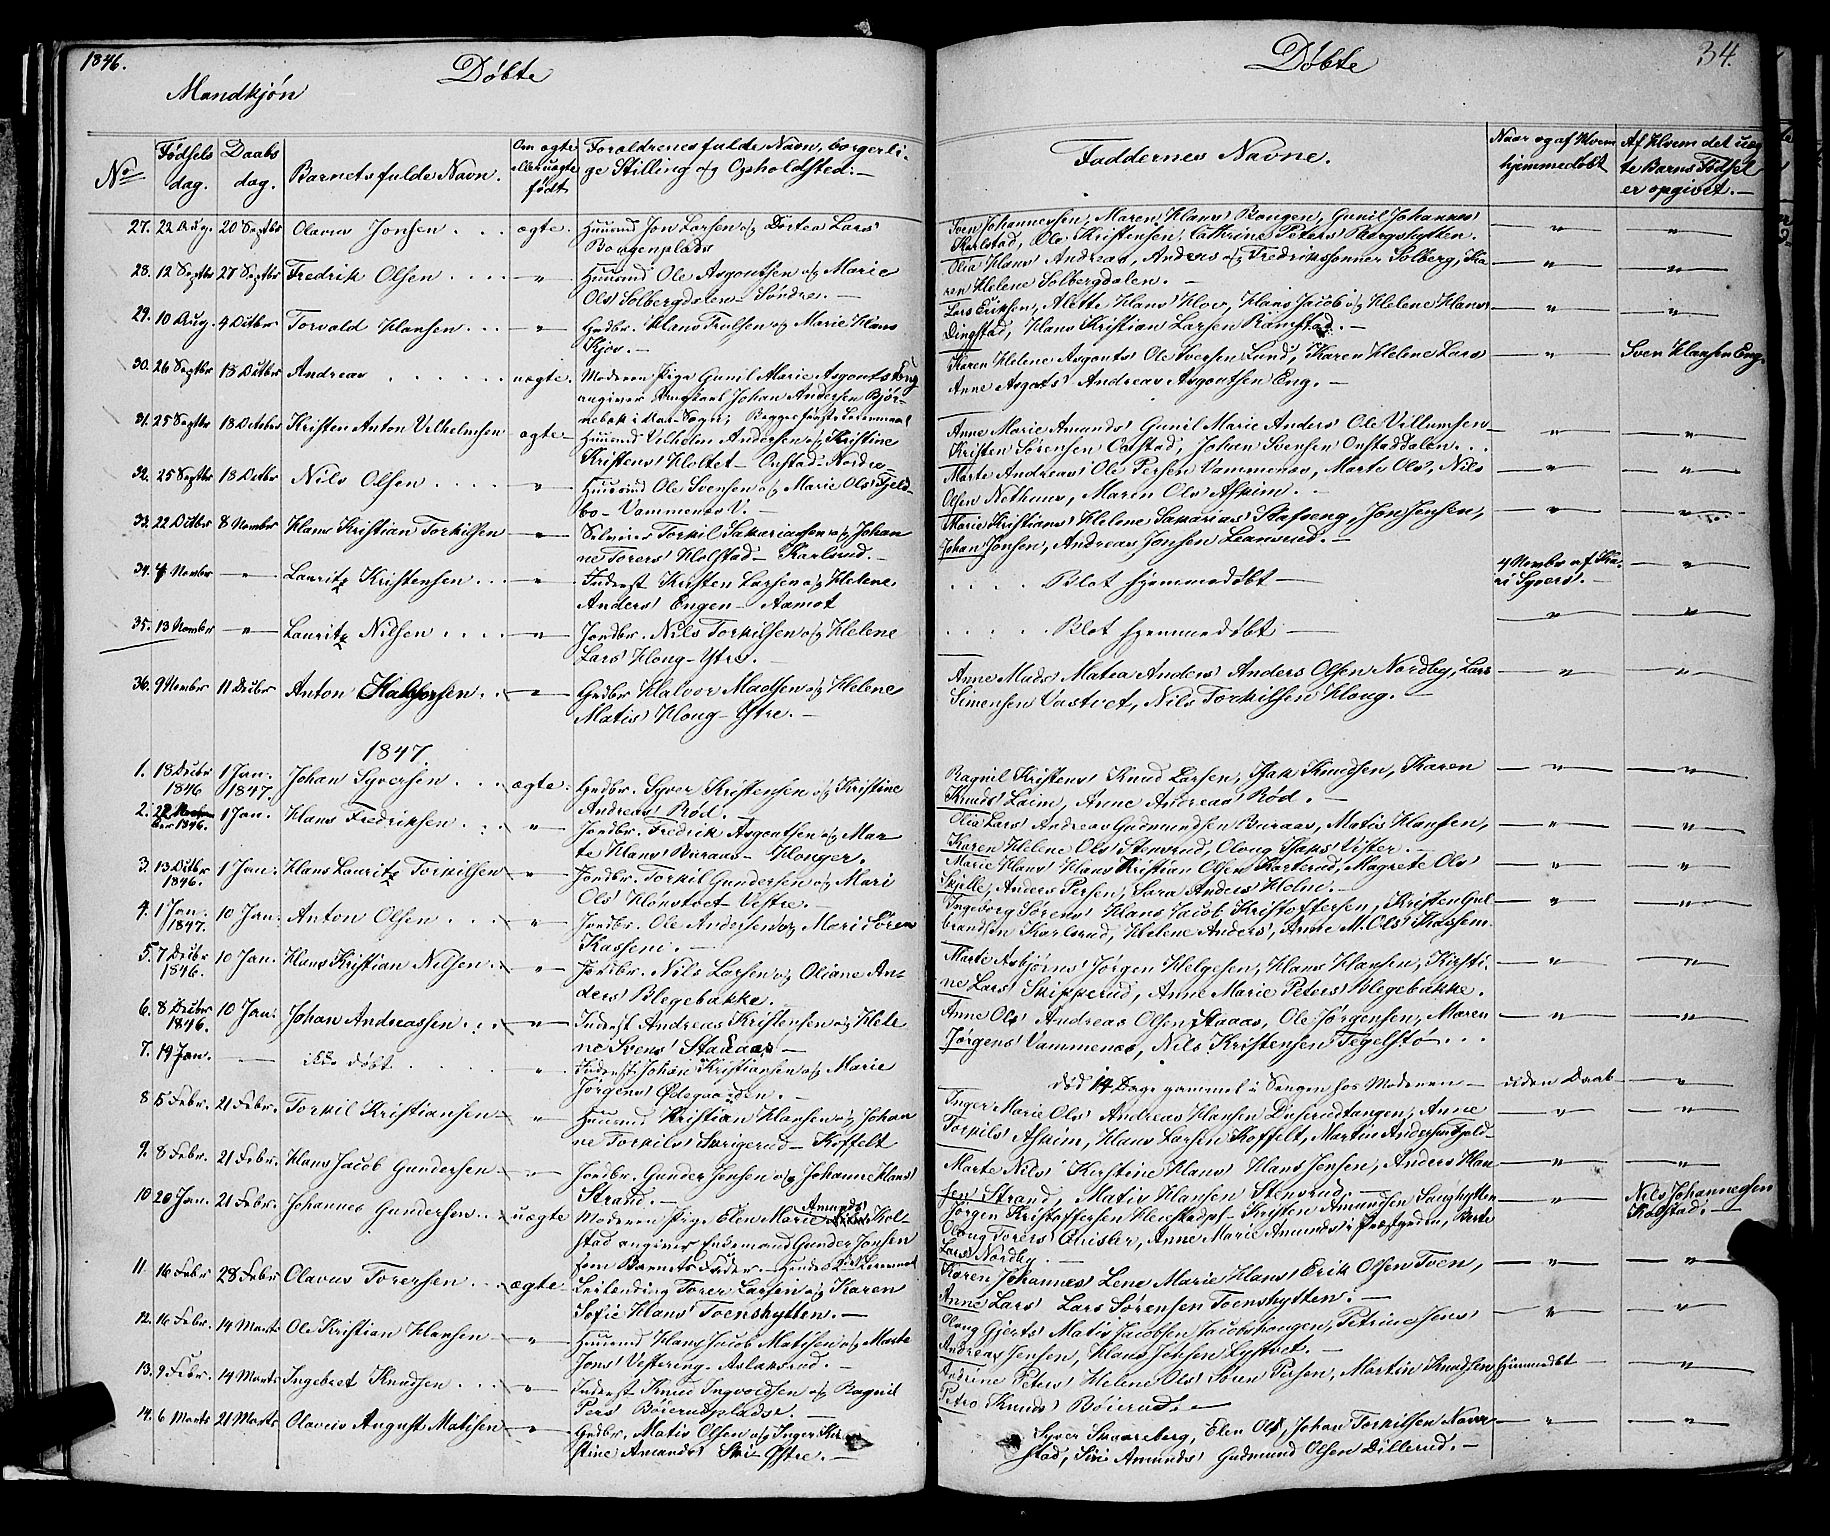 1846.
Døbte
Mandkjøn
No
Fødsels dag.
Daabs dag.
Barnets fulde Navn.
Om ægte eller uægte født
Forældrenes fulde Navn, borgerlige Stilling og Opholdsted.
27. 22 Aug. 20 Septbr Olavus Jonsen . . . ægte. Huusmd Jon Larsen og Dortea Lars'
Bongenplads
28. 12 Septbr 27 Septbr Fredrik Olsen . . . . " Huusmd Ole Asgoutsen og Marie
Ols' Solbergdalen Søndre. —
29. 10 Aug. 4 Octbr Torvald Hansen . . . " Grdbr. Hans Trulsen og Marie Hans
Kjøv. —
30. 26 Septbr 18 Octbr Andreas . . . . . uægte. Moderen Pige Gunil Marie Asgouts Eng
angiver Johan Andersen Bjør-
nebek i Aas Sogn; Begges første Leiermaal
31. 25 Septbr 18 Octobr Kristen Anton Vilhelmsen ægte Huusmd Vilhelm Andersen og Kristine
Kristens' Holtet Onstad Nordre
32. 25 Septbr 18 Octbr Nils Olsen . . . . " Huusmd Ole Svensen og Marie Ols' Fjeld-
bo Vammenes V. —
33. 22 Octbr 8 Novmbr Hans Kristian Torkilsen " Selveier Torkil Sakariassen og Johan
ne Torers' Holstad Karlsrud. —
34. 4 Novmbr " Lauritz Kristensen . . . " Inderst Kristen Larsen og Helene
Anders' Engen Aamot
35. 13 Novmbr " Lauritz Nilsen . . . . " Jordbr. Nils Torkilsen og Helene
Lars' Houg Ytre. —
36. 9 Novmbr 11 Decbr Anton Halvorsen . . " Grdbr Halvor Madsen og Helene
Matis' Houg Østre. —
1847.
1. 18 Decbr 1846 1 Jan. 1847. Johan Syversen . . . ægte. Grdbr. Syver Kristensen og Kristine
Andreas' Rød. —
2. 1846. 1 Jan. Hans Fredriksen . . " Jordbr. Fredrik Asgoutsen og Mar-
te Hans' Buraas Honger.
3. 13 Octbr 1846. 1 Jan. Hans Lauritz Torkilsen " Jordbr. Torkil Gundersen og Mari
Ols' Vestre. —
4. 1 Jan. 1847. 10 Jan. Anton Olsen . . . " Jordbr. Ole Andersen og Mari Sören
Kassene. —
5. 7 Decbr 1846. 10 Jan. Hans Kristian Nilsen " Jordbr. Nils Larsen og Oliane An-
ders' Blegebakke.
6. 8 Decbr 1846. 10 Jan. Johan Andreassen . . . " Inderst Andreas Kristensen og Hele
ne Svens' Stadaas —
7. 19 Jan. — ikke døbt . . . . . " Inderst Johan Kristiansen og Marie
Jörgens' Ødegaarden. —
8 15 Febr. 21 Febr. Torkil Kristiansen " Huusmd Kristian Hansen og Johan
ne Torkils' Koffelt
9. 8 Febr. 21 Febr. Hans Jacob Gundersen " Jordbr. Gunder Jonsen og Johanne Hans'
Strand. —
10 20 Jan. 21 Febr. Johannes Gundersen . . uægte Moderen Pige Elen Marie Amunds' Hol-
stad angiver Gunder Jonsen
som Barnets Fader.
11. 16 Febr 28 Febr Olavus Torersen . . ægte. Leilending Torer Larsen og Karen
Sofie Hans' Toenshytten. —
12. 16 Febr. 14 Marts Ole Kristian Hansen " Huusmd Hans Jacob Matisen og Marte
Jons' Vestereng Aslaksrud. —
13. 9 Febr. 14 Marts Ingebret Knudsen . . " Inderst Knud Ingvoldsen og Ragnil
Pers' Böierudpladse. —
14. 6 Marts 21 Marts Olavus August Matisen " Grdbr. Matis Olsen og Inger Kir
stine Amunds' Ski Østre. —
Døbte
34.
Faddernes Navne.
Naar og af Hvem hjemmedøbt
Af Hvem det uægte Barns Fødsel er opgivet. —
Sven Johannessen, Maren Hans' Bongen, Gunil Johannes'
Karlstad, Ole Kristensen, Cathrine Peters' Bergshytten.
Olia Hans' Andreas, Andreas og Fredrikssønner Solberg, Ka-
ren Helene Solbergdalen. —
Lars Eriksen, Alette Hans' Kjov, Hans Jacob og Helene Hans'
Dingstad, Hans Kristian Larsen Rånestad. —
Karen Helene Asgouts' Ole Svensen Lund, Karen Helene Lars' Sven Hansen Eng.
Anne Asgouts' Andreas Asgoutsen Eng. —
Anne Marie Amunds' Gunil Marie Anders' Ole Villumsen
Kristen Sørensen Onstad, Johan Svensen Onstaddalen. . .
Marte Andreas' Ole Persen Vammenes, Marte Ols', Nils
Olsen Nøthuus, Maren Ols' Askim. —
Marie Kristians' Helene Sakarias' Stafseng, Jon Jensen,
Johan Jonsen, Andreas Jonsen Leansrud. —
. . . . Blot hjemmedøbt — 4 Novmbr af Ka-
ri Syvers'. —
. . . . Blot hjemmedøbt —
Anne Mads' Matea Anders' Anders Olsen Nordby, Lars
Simensen Vastvet, Nils Torkilsen Houg. —
Ragnil Kristens' Knud Larsen, Isak Knudsen, Karen
Knuds' Leim, Anne Andreas' Rød. —
Olia Lars' Andreas Gudmundsen Buraas, Matis Hansen,
Karen Helene Ols' Stensrud, Oloug Isaks' Vister. —
Marie Hans' Hans Kristian Olsen Karterud, Magrete Ols'
Skjelle, Anders Persen, Sara Anders' Holm. —
Ingeborg Sørens' Hans Jacob Kristoffersen, Kristen Gul-
brandsen Karlsrud, Helene Anders', Anne M. Ols' Kassem.
Marte Asbjörns' Jörgen Helgesen, Hans Hansen, Kirsti-
ne Lars' Skipperud, Anne Marie Peters' Blegebakke.
Anne Ols' Andreas Olsen Staaas, Ole Jörgensen, Maren
Jörgens' Vammenes, Nils Kristensen Tegelstø . . .
død 14 Dage gammel i Sengen hos Moderen — uden Daab
Inger Marie Ols' Andreas Hansen Diserudtangen, Anne
Torkils' Askim, Hans Larsen Koffelt, Martin Andersen Fjeld-
Marte Nils' Kirstine Hans' Hans Jensen, Anders Han-
sen Strand, Matis Hansen Stensrud. —
Jörgen Kristoffersen Heiestadpl. Kristen Amundsen Saughytten Nils Johannessen
Kolstad. —
Oloug Torers' Qvisler, Anne Marie Amunds' i Præstgrden, Berte
Lars' Nordby. —
Karen Johannes' Lene Marie Hans' Erik Olsen Toen,
Anne Lars' Lars Sørensen Toenshytten. —
Oloug Gjerts' Matis Jacobsen Jacobshaugen, Petrine Jens'
Andreas Jensen, Hans Jensen —
Andrine Peters' Helene Ols' Søren Persen, Martin Knudsen hjemmedbt
Petro Knuds' Böierud. —
Syver Skaareberg, Elen Ols', Johan Torkilsen Naur
stad, Siri Amunds' Gudmund Olsen Dillerud. —